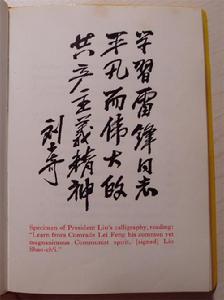 学習雷锋同志
平凡而伟大的
共产主義精神
刘少奇
Specimen of President Liu's calligraphy, reading:
"Learn from Comrade Lei Feng his common yet
magnanimous Communist spirit. [signed] Liu
Shao-ch'i."